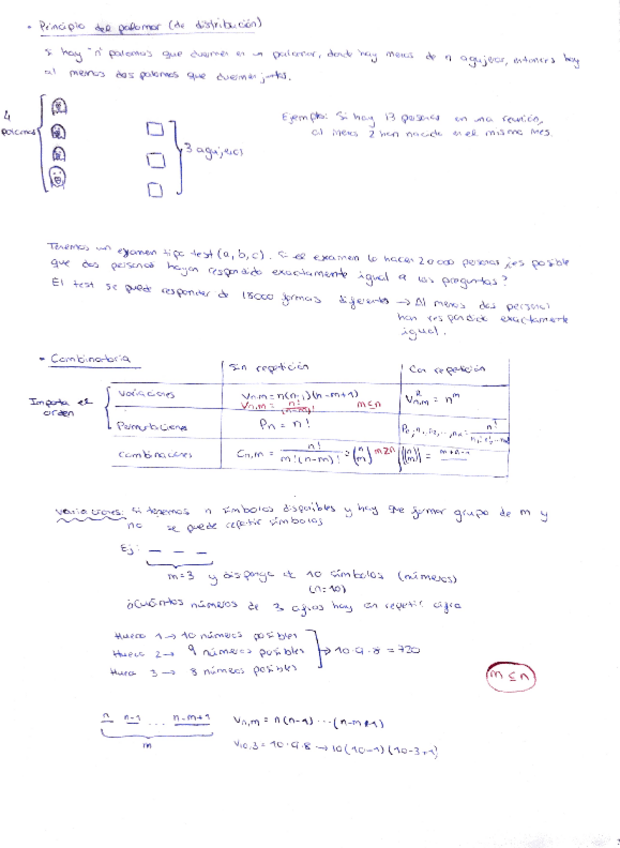 • Principio del palomar (de distribución)
Si hay "n" palomas que duermen en un palomar, donde hay menos de n agujeros, entonces hay
al menos dos palomas que duermen juntas.
4 palomas
3 agujeros
Ejemplo: Si hay 13 personas en una reunión,
al menos 2 han nacido en el mismo mes.
Tenemos un examen tipo test (a, b, c). Si el examen lo hacen 20000 personas ¿es posible
que dos personas hayan respondido exactamente igual a las preguntas?
El test se puede responder de 18000 formas diferentes → Al menos dos personas
han respondido exactamente
igual.
• Combinatoria
Sin repetición Con repetición
Importa el orden
Variaciones Vn,m = n(n-1)(n-m+1) m≤n
Vn,m = n!
VRn,m = n^m
Permutaciones Pn = n!
Combinaciones Cn,m = n! / m!(n-m)! = (n m) m≥n
Variaciones: Si tenemos n símbolos disponibles y hay que formar grupo de m y
no se puede repetir símbolos
Ej: _ _ _
m=3 y dispongo de 10 símbolos (números)
(n=10)
¿Cuántos números de 3 cifras hay sin repetir cifra
Hueco 1 → 10 números posibles
Hueco 2 → 9 números posibles → 10·9·8 = 720
Hueco 3 → 8 números posibles
m ≤ n
n n-1 ... n-m+1 Vn,m = n(n-1)···(n-m+1)
m
V10,3 = 10·9·8 → 10(10-1)(10-3+1)